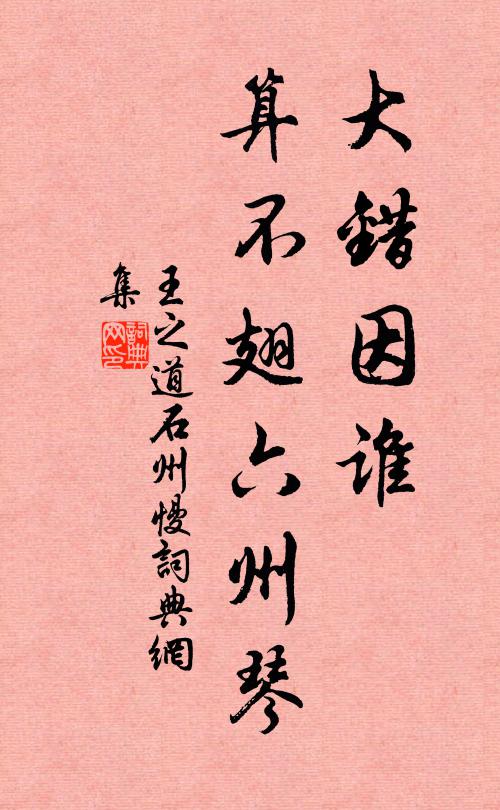 大錯因誰
算不翅六州琴
王之道石州慢詞典網
集
詞典
网印